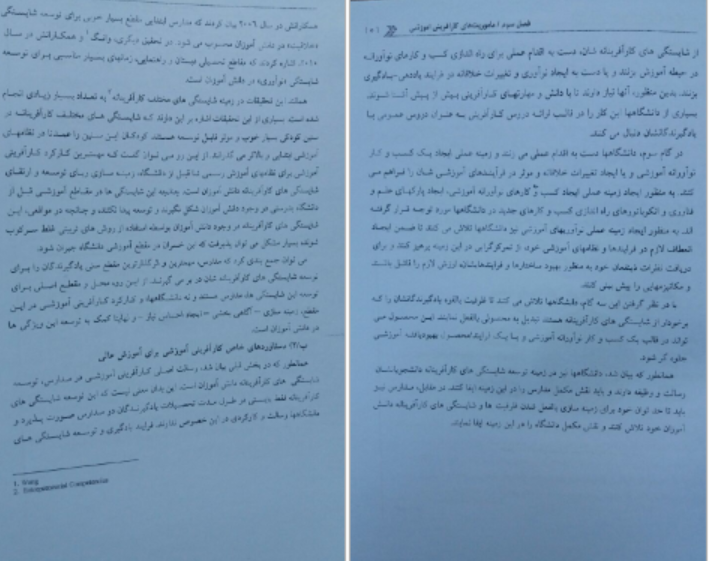 همکارانش در سال ۲۰۰۶ بیان کردند که مدارس ابتدایی مقطع بسیار خوبی برای توسعه شایستگی
«خلاقیت» در دانش آموزان محسوب می شود. در تحقیق دیگری، وانگ¹ و همکارانش در سال
۲۰۱۰، اشاره کردند که مقاطع تحصیلی دبستان و راهنمایی، زمانهای بسیار مناسبی برای توسعه
شایستگی «نوآوری» در دانش آموزان است.
همانند این تحقیقات در زمینه شایستگی های مختلف کارآفرینانه² به تعداد بسیار زیادی انجام
شده است. بسیاری از این تحقیقات اشاره بر این دارند که شایستگی های مختلف کارآفرینانه در
سنین کودکی بسیار خوب و موثر قابل توسعه هستند. کودکان این سنین را عمدتا در نظامهای
آموزشی ابتدایی و بالاتر می گذرانند. از این رو می توان گفت که مهمترین کارکرد کارآفرینی
آموزشی برای نظامهای آموزش رسمی تا قبل از دانشگاه، زمینه سازی برای توسعه و ارتقای
شایستگی های کارآفرینانه دانش آموزان است. چنانچه این شایستگی ها در مقاطع آموزشی قبل از
دانشگاه بدرستی در وجود دانش آموزان شکل نگیرند و توسعه پیدا نکنند و چنانچه در مواقعی، این
شایستگی های کارآفرینانه در وجود دانش آموزان بواسطه استفاده از روش های تربیتی غلط سرکوب
شوند، بسیار مشکل می توان پذیرفت که این خسران در مقطع آموزشی دانشگاه جبران شود.
می توان جمع بندی کرد که مدارس، مهمترین و اثرگذارترین مقطع سنی یادگیرندگان را برای
توسعه شایستگی های کارآفرینانه شان در بر می گیرند. از این رو، محل و مقطع اصلی برای
توسعه این شایستگی ها، مدارس هستند و نه دانشگاهها، و کارکرد کارآفرینی آموزشی در این
مقطع، زمینه سازی - آگاهی بخشی - ایجاد احساس نیاز - و نهایتا کمک به توسعه این ویژگی ها
در دانش آموزان است.
ب/۲) دستاوردهای خاص کارآفرینی آموزشی برای آموزش عالی
همانطور که در بخش قبلی بیان شد، رسالت اصلی کارآفرینی آموزشی در مدارس، توسعه
شایستگی های کارآفرینانه دانش آموزان است. این بدان معنی نیست که این توسعه شایستگی های
کارآفرینانه فقط بایستی در طول مدت تحصیلات یادگیرندگان در مدارس صورت پذیرد و
دانشگاهها رسالت و کارکردی در این خصوص ندارند. فرایند یادگیری و توسعه شایستگی های
1. Wang
2. Entrepreneurial Competencies
فصل سوم / ماموریت‌های کارآفرینی آموزشی
از شایستگی های کارآفرینانه شان، دست به اقدام عملی برای راه اندازی کسب و کارهای نوآورانه
در حیطه آموزش بزنند و یا دست به ایجاد نوآوری و تغییرات خلاقانه در فرایند یاددهی-یادگیری
بزنند. بدین منظور، آنها نیاز دارند تا با دانش و مهارتهای کارآفرینی بیش از پیش آشنا شوند.
بسیاری از دانشگاهها این کار را در قالب ارائه دروس کارآفرینی به همراه دروس عمومی با
یادگیرندگانشان دنبال می کنند.
در گام سوم، دانشگاهها دست به اقدام عملی می زنند و زمینه عملی ایجاد یک کسب و کار
نوآورانه آموزشی و یا ایجاد تغییرات خلاقانه و موثر در فرآیندهای آموزشی شان را فراهم می
کنند. به منظور ایجاد زمینه عملی ایجاد کسب و کارهای نوآورانه آموزشی، ایجاد پارکهای علم و
فناوری و انکوباتورهای راه اندازی کسب و کارهای جدید در دانشگاهها مورد توجه قرار گرفته
اند. به منظور ایجاد زمینه عملی نوآوریهای آموزشی نیز دانشگاهها تلاش می کنند تا ضمن ایجاد
انعطاف لازم در فرایندها و نظامهای آموزشی خود، از تمرکزگرایی در این زمینه پرهیز کنند و برای
دریافت نظرات ذینفعان خود به منظور بهبود ساختارها و فرایندهایشان ارزش لازم را قائل باشند
و مکانیزمهایی را پیش بینی کنند.
با در نظر گرفتن این سه گام، دانشگاهها تلاش می کنند تا ظرفیت بالقوه یادگیرندگانشان را که
برخوردار از شایستگی های کارآفرینانه هستند، تبدیل به محصولی بالفعل نمایند. این محصول می
تواند در قالب یک کسب و کار نوآورانه آموزشی و یا یک فرایند/محصول بهبودیافته آموزشی
جلوه گر شود.
همانطور که بیان شد، دانشگاهها نیز در زمینه توسعه شایستگی های کارآفرینانه دانشجویانشان
رسالت و وظیفه دارند و باید نقش مکمل مدارس را در این زمینه ایفا کنند. در مقابل، مدارس نیز
باید تا حد توان خود برای زمینه سازی بالفعل شدن ظرفیت ها و شایستگی های کارآفرینانه دانش
آموزان خود تلاش کنند و نقش مکمل دانشگاه را در این زمینه ایفا نمایند.